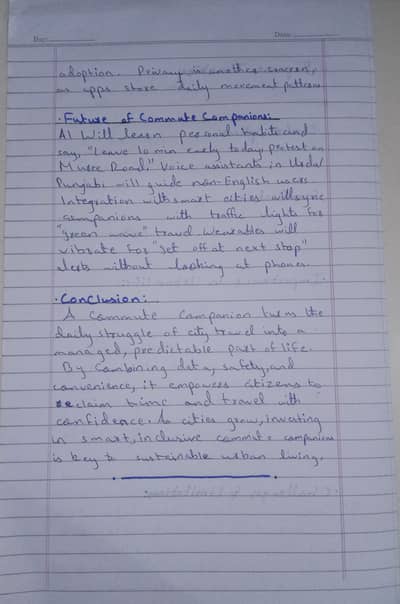 Day: Date:
adoption. Privacy is another concern,
as apps store daily movement patterns
· Future of Commute Companions:
AI Will learn personal habits and
say, "Leave 10 min early today, protest on
Murree Road." Voice assistants in Urdu/
Punjabi will guide non-English users.
Integration with smart cities will sync
companions with traffic lights for
"green wave" travel. Wearables will
vibrate for "get off at next stop"
alerts without looking at phones.
· Conclusion:
A Commute Companion turns the
daily struggle of city travel into a
managed, predictable part of life.
By Combining data, safety, and
convenience, it empowers citizens to
reclaim time and travel with
confidence. As cities grow, investing
in smart, inclusive commute companions
is key to sustainable urban living.